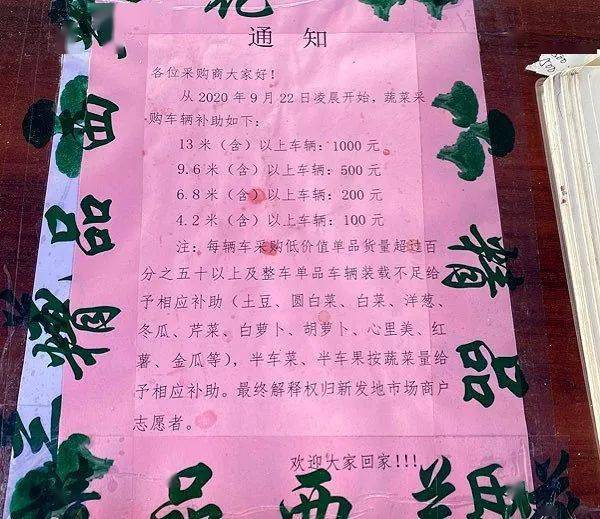 通知
各位采购商大家好！
从 2020 年 9 月 22 日凌晨开始，蔬菜采
购车辆补助如下：
13 米（含）以上车辆：1000 元
9.6 米（含）以上车辆：500 元
6.8 米（含）以上车辆：200 元
4.2 米（含）以上车辆：100 元
注：每辆车采购低价值单品货量超过百
分之五十以上及整车单品车辆装载不足给
予相应补助（土豆、圆白菜、白菜、洋葱、
冬瓜、芹菜、白萝卜、胡萝卜、心里美、红
薯、金瓜等），半车菜、半车果按蔬菜量给
予相应补助。最终解释权归新发地市场商户
志愿者。
欢迎大家回家!!!
精品
品西兰